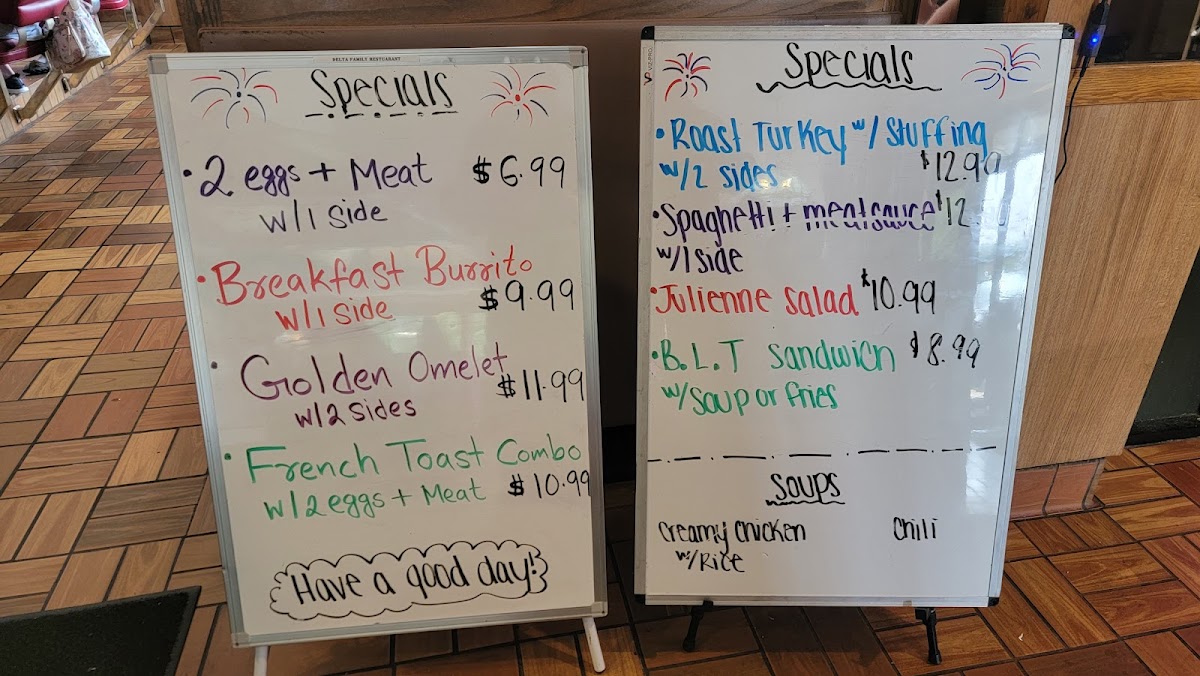 DELTA FAMILY RESTUARANT
Specials
• 2 eggs + Meat $6.99
w/1 side
• Breakfast Burrito
w/1 side $9.99
• Golden Omelet
w/2 sides $11.99
• French Toast Combo
w/2 eggs + Meat $10.99
Have a good day!
VIZ-PRO
Specials
• Roast Turkey w/ Stuffing
w/2 sides $12.99
• Spaghetti + meatsauce $12.
w/1 side
• Julienne Salad $10.99
• B.L.T Sandwich $8.99
w/Soup or fries
Soups
Creamy Chicken Chili
w/Rice